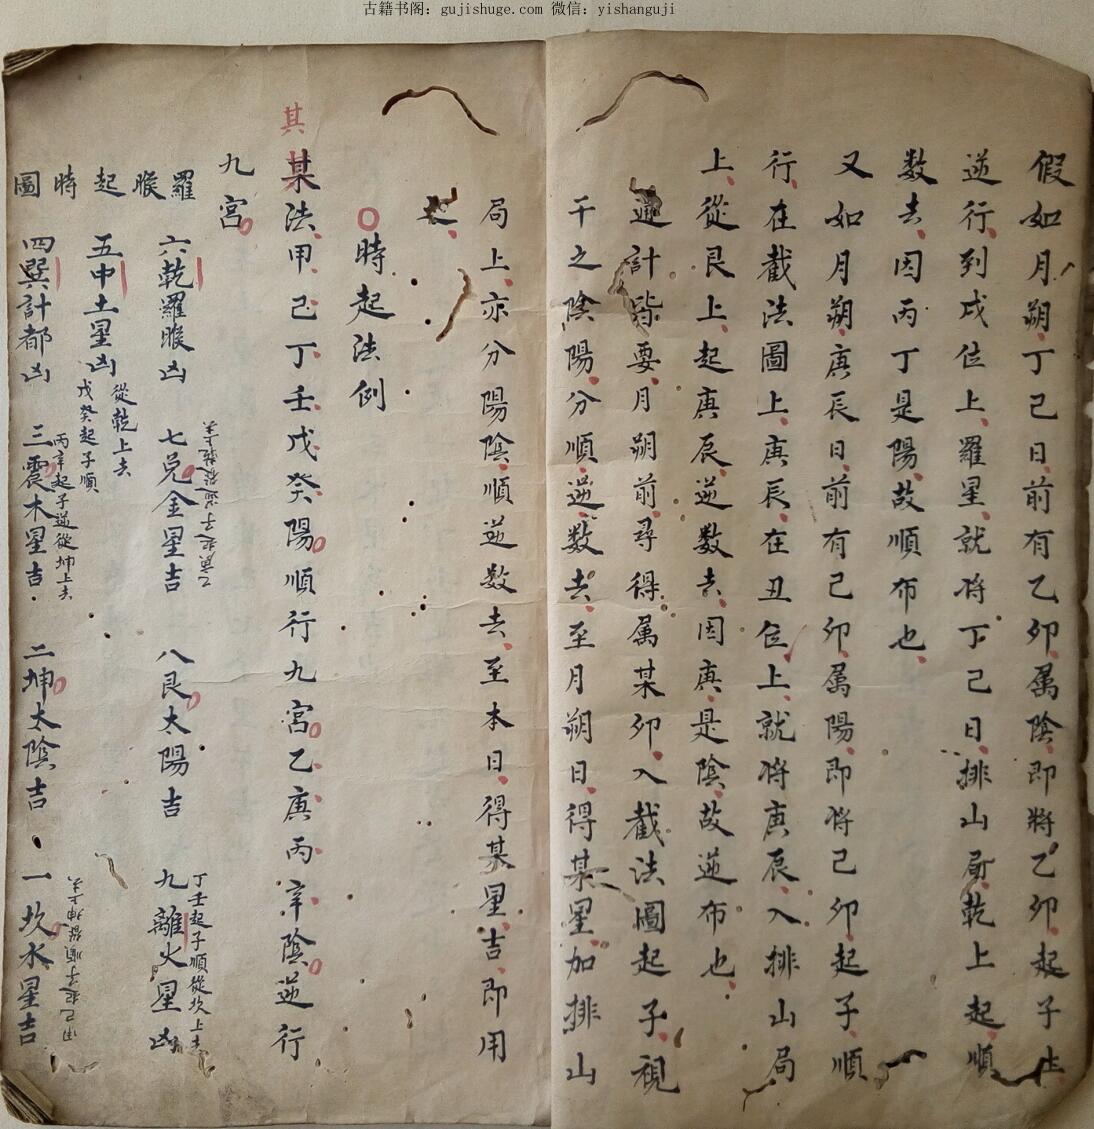 古籍书阁：gujishuge.com 微信：yishanguji
假如月朔丁己日前有乙卯属陰即將乙卯起子
逆行到戍位上羅星就将丁己日排山局乾上起順
数去因丙丁是陽故順布也
又如月朔庚辰日前有己卯属陽即将己卯起子順
行在截法圖上庚辰在丑位上就将庚辰入排山局
上從艮上起庚辰逆数去因庚是陰故逆布也
計皆要月朔前尋得属某卯入截法圖起子視
干之陰陽分順逆数去至月朔日得某星加排山
局上亦分陽陰順逆数去至本日得某星吉即用
時起法例
其
某法甲己丁壬戊癸陽順行九宮乙庚丙辛陰逆行
九宮
羅睺起時圖
六乾羅睺凶
七兌金星吉
乙庚起子逆從乾上去
八艮太陽吉
九離火星凶
丁壬起子順從坎上去
五中土星凶
從乾上去
戊癸起子順
四巽計都凶
三震木星吉
丙辛起子逆從坤上去
二坤太陰吉
一坎水星吉
甲己起子順從坤上去